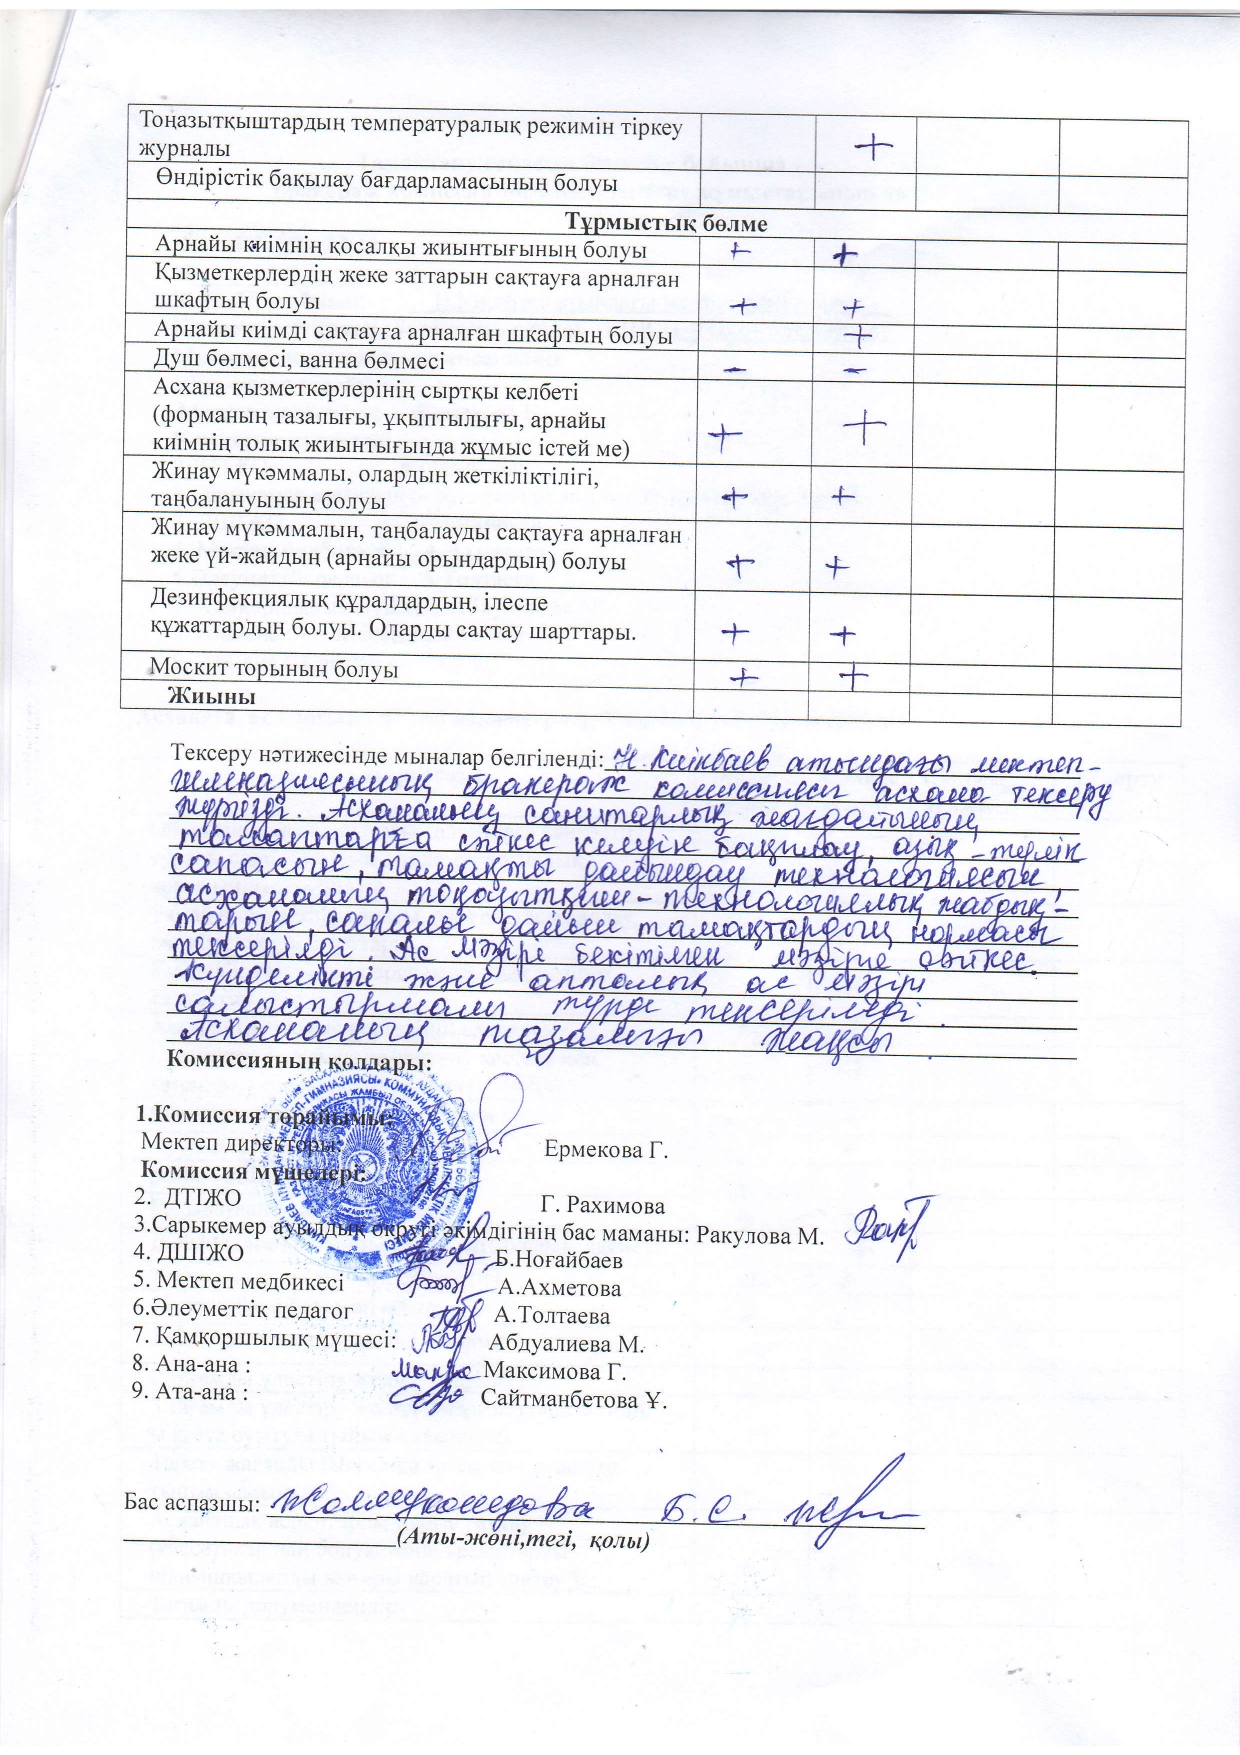 Тоңазытқыштардың температуралық режимін тіркеу
журналы +
Өндірістік бақылау бағдарламасының болуы
Тұрмыстық бөлме
Арнайы киімнің қосалқы жиынтығының болуы + +
Қызметкерлердің жеке заттарын сақтауға арналған
шкафтың болуы + +
Арнайы киімді сақтауға арналған шкафтың болуы +
Душ бөлмесі, ванна бөлмесі – –
Асхана қызметкерлерінің сыртқы келбеті
(форманың тазалығы, ұқыптылығы, арнайы
киімнің толық жиынтығында жұмыс істей ме) + +
Жинау мүкәммалы, олардың жеткіліктілігі,
таңбалануының болуы + +
Жинау мүкәммалын, таңбалауды сақтауға арналған
жеке үй-жайдың (арнайы орындардың) болуы + +
Дезинфекциялық құралдардың, ілеспе
құжаттардың болуы. Оларды сақтау шарттары. + +
Москит торының болуы + +
Жиыны
Тексеру нәтижесінде мыналар белгіленді: Н. Киікбаев атындағы мектеп-
гимназиясының бракераж комиссиясы асхана тексеру
жүргізді. Асхананың санитарлық жағдайының
талаптарға сәйкес келуін бақылау, азық-түлік
сапасын, тамақты дайындау технологиясын,
асхананың тоңазытқыш-технологиялық жабдық-
тарын, сапалы дайын тамақтардың нормасы
тексерілді. Ас мәзірі бекітілген мәзірге сәйкес.
Күнделікті және апталық ас мәзірі
салыстырмалы түрде тексерілді.
Асхананың тазалығы жақсы.
Комиссияның қолдары:
1.Комиссия төрайымы:
Мектеп директоры: Ермекова Г.
Комиссия мүшелері:
2. ДТІЖО Г. Рахимова
3.Сарыкемер ауылдық округі әкімдігінің бас маманы: Ракулова М.
4. ДШІЖО Б.Ноғайбаев
5. Мектеп медбикесі А.Ахметова
6.Әлеуметтік педагог А.Толтаева
7. Қамқоршылық мүшесі: Абдуалиева М.
8. Ана-ана : Максимова Г.
9. Ата-ана : Сайтманбетова Ұ.
Бас аспазшы: Б.С.
(Аты-жөні,тегі, қолы)